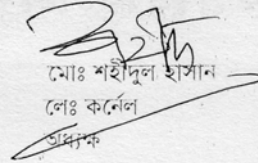 মোঃ শহীদুল হাসান
লেঃ কর্নেল
অধ্যক্ষ